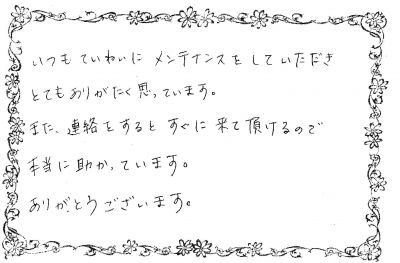 いつもていねいに メンテナンスをしていただき
とてもありがたく思っています。
また、連絡をすると すぐに 来て頂けるので
本当に助かっています。
ありがとうございます。